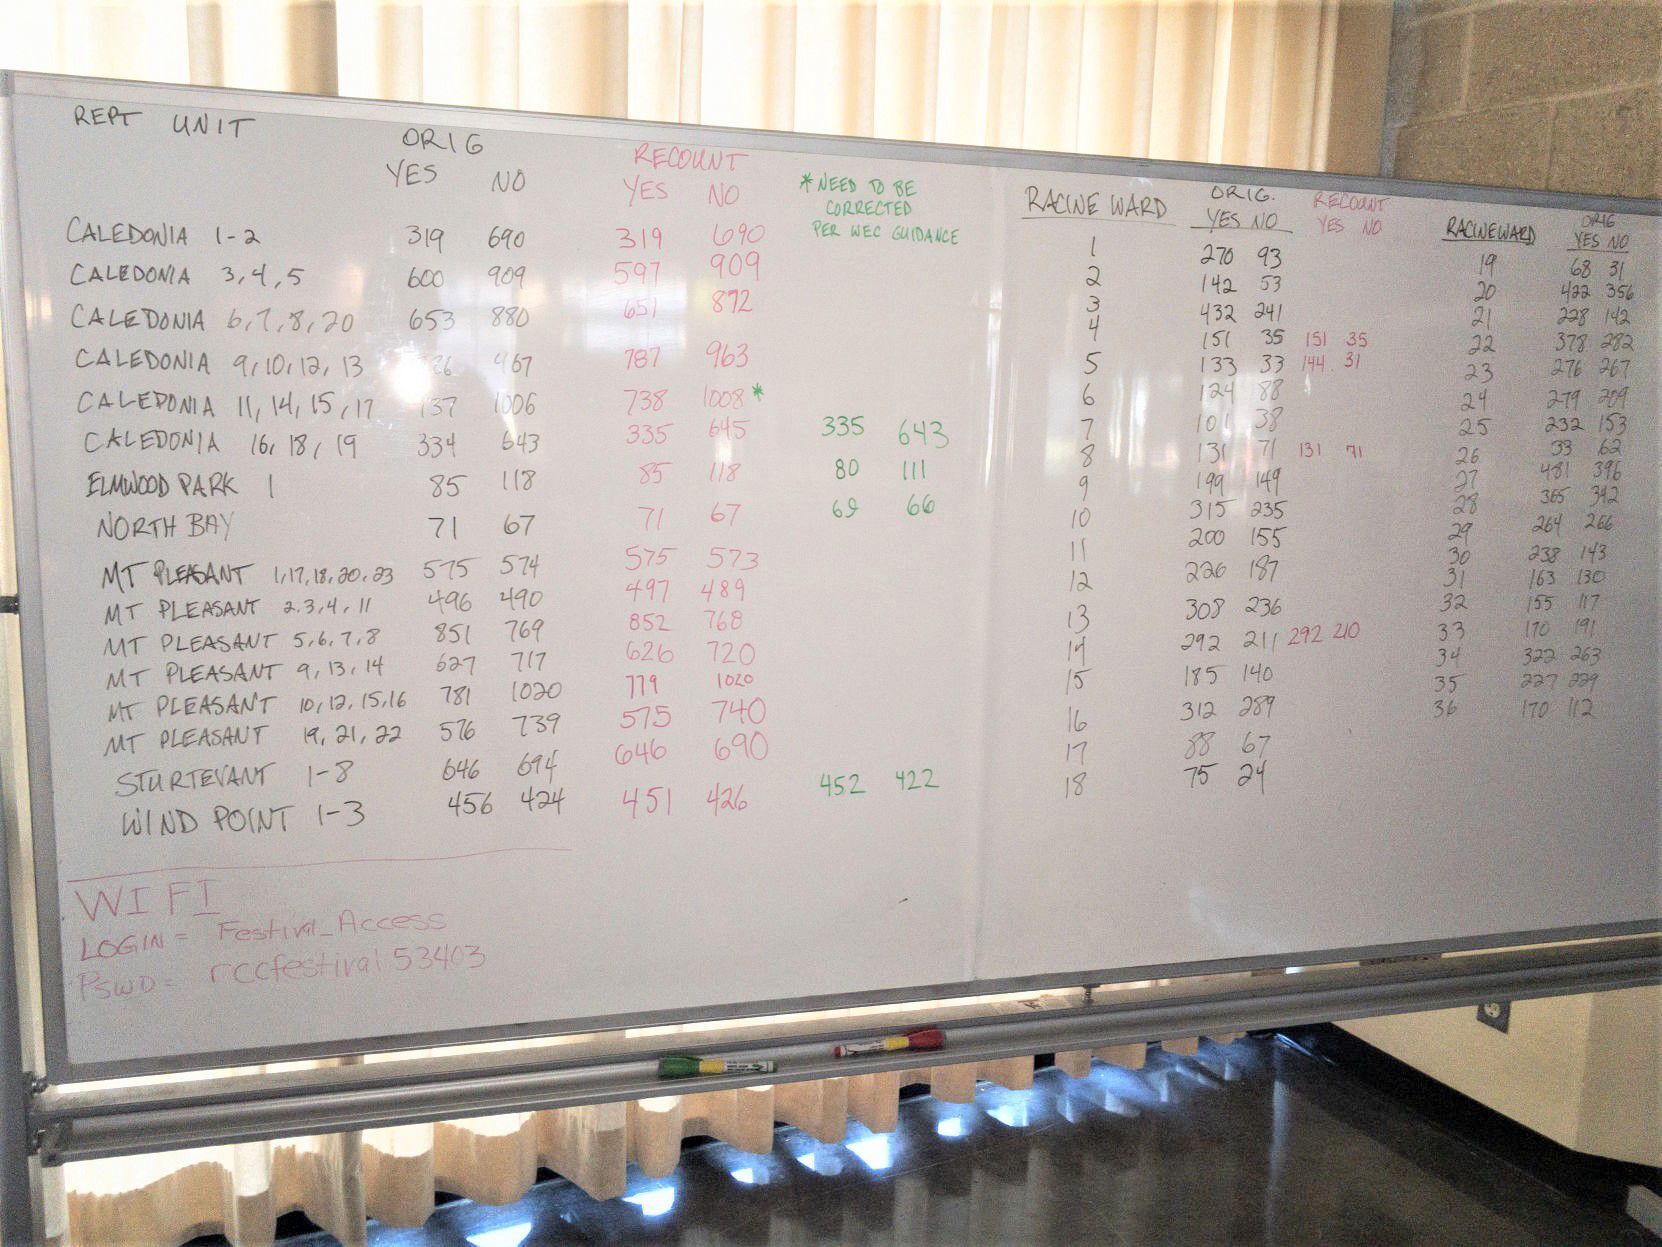 REPT UNIT ORIG RECOUNT
YES NO YES NO
*NEED TO BE
CORRECTED
PER WEC GUIDANCE
CALEDONIA 1-2 319 690 319 690
CALEDONIA 3,4,5 600 909 597 909
CALEDONIA 6,7,8,20 653 880 651 872
CALEDONIA 9,10,12,13 967 787 963
CALEDONIA 11,14,15,17 1006 738 1008*
CALEDONIA 16,18,19 334 643 335 645 335 643
ELMWOOD PARK 1 85 118 85 118 80 111
NORTH BAY 71 67 71 67 69 66
MT PLEASANT 1,17,18,20,23 575 574 575 573
MT PLEASANT 2,3,4,11 496 490 497 489
MT PLEASANT 5,6,7,8 851 769 852 768
MT PLEASANT 9,13,14 627 717 626 720
MT PLEASANT 10,12,15,16 781 1020 779 1020
MT PLEASANT 19,21,22 576 739 575 740
STURTEVANT 1-8 646 694 646 690
WIND POINT 1-3 456 424 451 426 452 422
WIFI
LOGIN = Festival_Access
PSWD = rccfestival53403
RACINE WARD ORIG. RECOUNT
YES NO YES NO
1 270 93
2 142 53
3 432 241
4 151 35 151 35
5 133 33 144 31
6 124 88
7 101 38
8 131 71 131 71
9 199 149
10 315 235
11 200 155
12 226 187
13 308 236
14 292 211 292 210
15 185 140
16 312 289
17 88 67
18 75 24
RACINE WARD ORIG
YES NO
19 68 31
20 422 356
21 228 142
22 378 282
23 276 267
24 279 209
25 232 153
26 33 62
27 481 396
28 365 342
29 264 266
30 238 143
31 163 130
32 155 117
33 170 191
34 322 263
35 227 229
36 170 112